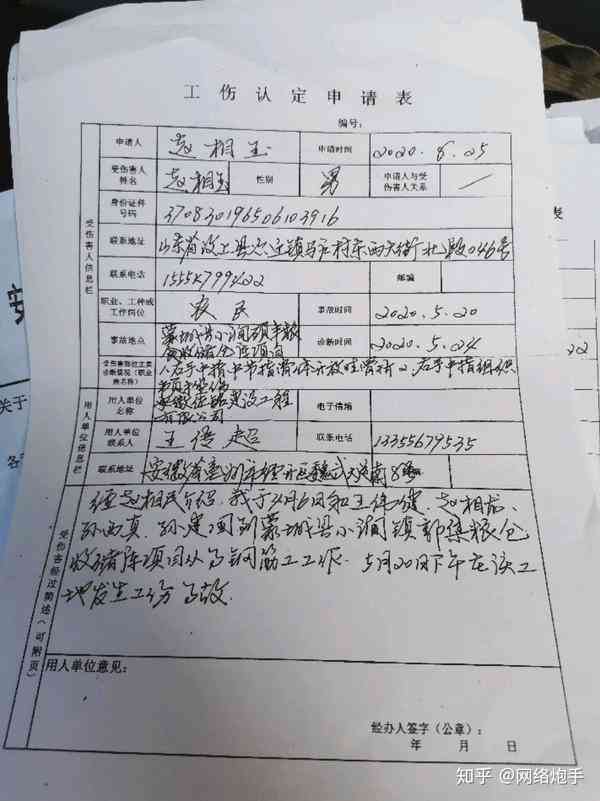 工伤认定申请表
编号：
申请人 赵相玉 申请时间 2020.8.25
受伤害人姓名 赵相玉 性别 男 申请人与受伤害人关系 /
身份证件号码 370830196506103916
联系地址 山东省汶上县 镇 村东西大街北 046号
联系电话 邮编
职业、工种或工作岗位 农民 事故时间 2020.5.20
事故地点 蒙城县小涧镇 诊断时间 2020.5.24
受伤害部位主要诊断情况(职业病名称) 1右手中指中节指骨 开放性骨折 2、右手中指组织
用人单位名称 安徽 建设工程有限公司 电子信箱
用人单位联系人 王 超 联系电话 13355679535
联系地址 安徽省 8号
受伤害经过简述(可附页)
经赵相民介绍，我于 月6日和王伟 、赵相龙、
孙西真、孙建国到蒙城县小涧镇郭集粮仓
收储库项目从事钢筋工工作。5月20日下午在该工
地发生工伤事故.
用人单位意见：
经办人签字(公章)：
年 月 日
表
22
关于
各
知乎 @网络炮手